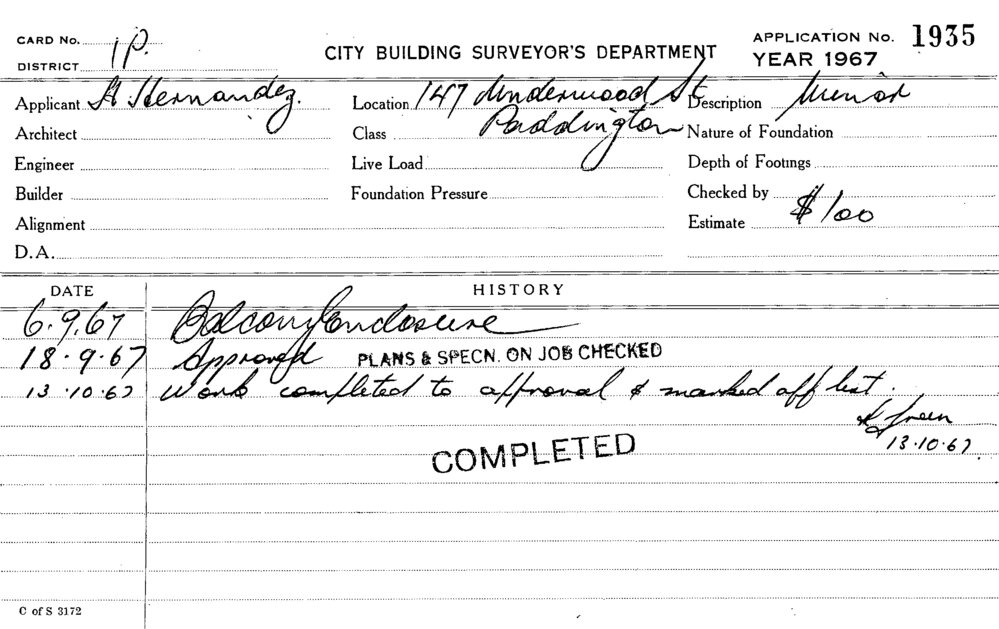 CARD No. 1P.
DISTRICT
CITY BUILDING SURVEYOR'S DEPARTMENT
APPLICATION No. 1935
YEAR 1967
Applicant A Hernandez. Location 147 Underwood St Description Minor
Architect Class Paddington Nature of Foundation
Engineer Live Load Depth of Footings
Builder Foundation Pressure Checked by
Alignment Estimate $100
D.A.
DATE HISTORY
6.9.67 Balcony Enclosure
18.9.67 Approved PLANS & SPECN. ON JOB CHECKED
13.10.67 Work completed to approval & marked off list.
Green
13.10.67
COMPLETED
C of S 3172